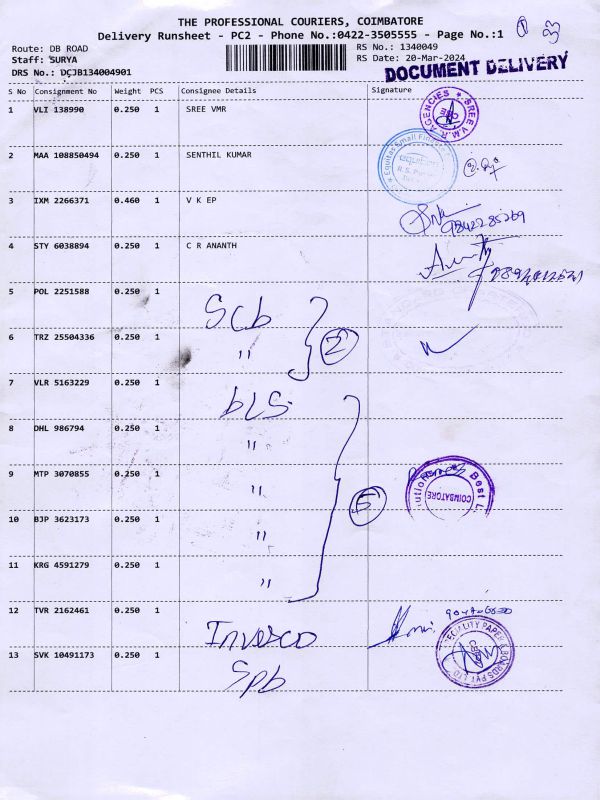 THE PROFESSIONAL COURIERS, COIMBATORE
Delivery Runsheet - PC2 - Phone No.:0422-3505555 - Page No.:1
Route: DB ROAD
Staff: SURYA
DRS No.: DCJB134004901
RS No.: 1340049
RS Date: 20-Mar-2024
DOCUMENT DELIVERY
S No Consignment No Weight PCS Consignee Details Signature
1 VLI 138990 0.250 1 SREE VMR
SREE V.M.R AGENCIES
CBE
2 MAA 108850494 0.250 1 SENTHIL KUMAR
Equitas Small Finance
equitas
3 IXM 2266371 0.460 1 V K EP
9842285269
4 STY 6038894 0.250 1 C R ANANTH
5 POL 2251588 0.250 1 Scb
6 TRZ 25504336 0.250 1 " 2
7 VLR 5163229 0.250 1 bLS
8 DHL 986794 0.250 1 "
9 MTP 3070855 0.250 1 " 5
Best
COIMBATORE
10 BJP 3623173 0.250 1 "
11 KRG 4591279 0.250 1 "
12 TVR 2162461 0.250 1 Invesco
13 SVK 10491173 0.250 1 Spb
SPECIALITY PAPER & BOARDS PVT LTD